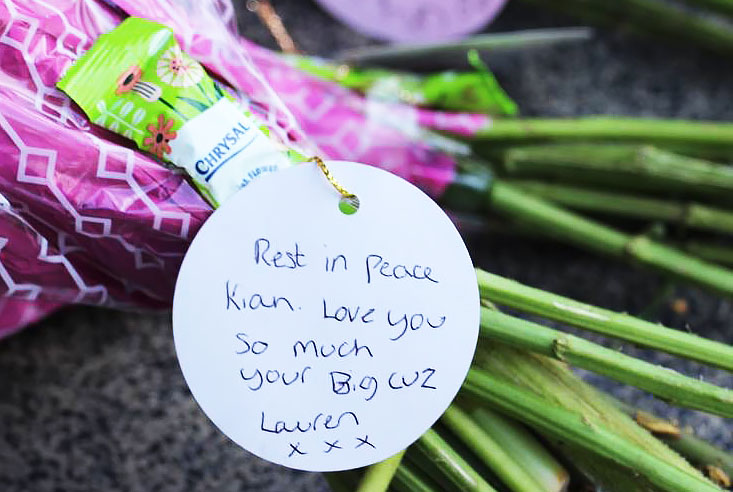 CHRYSAL
Rest in Peace
Kian. Love you
so much
your Big cuz
Lauren
x x x